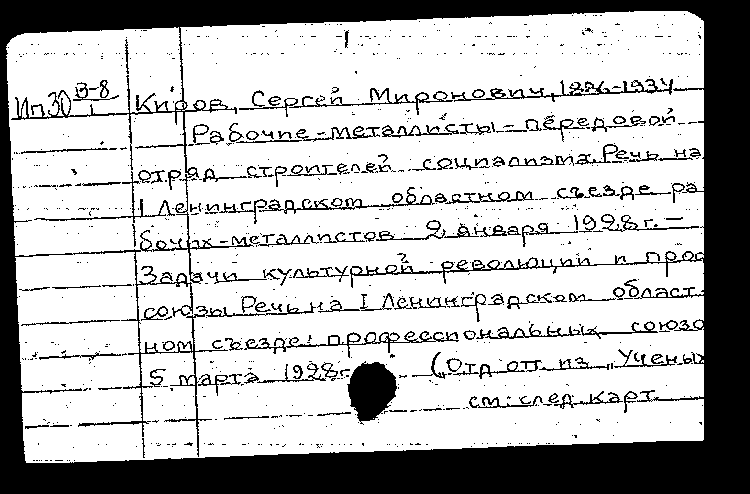 Ип30 В-8/1 Киров, Сергей Миронович, 1886-1934
Рабочие-металлисты - передовой
отряд строителей социализма. Речь на
I Ленинградском областном съезде ра
бочих-металлистов 2 января 1928 г. —
Задачи культурной революции и проф
союзы. Речь на I Ленинградском област-
ном съезде профессиональных союзо
5 марта 1928г. („Отд. отт. из „Ученых
см. след. карт.